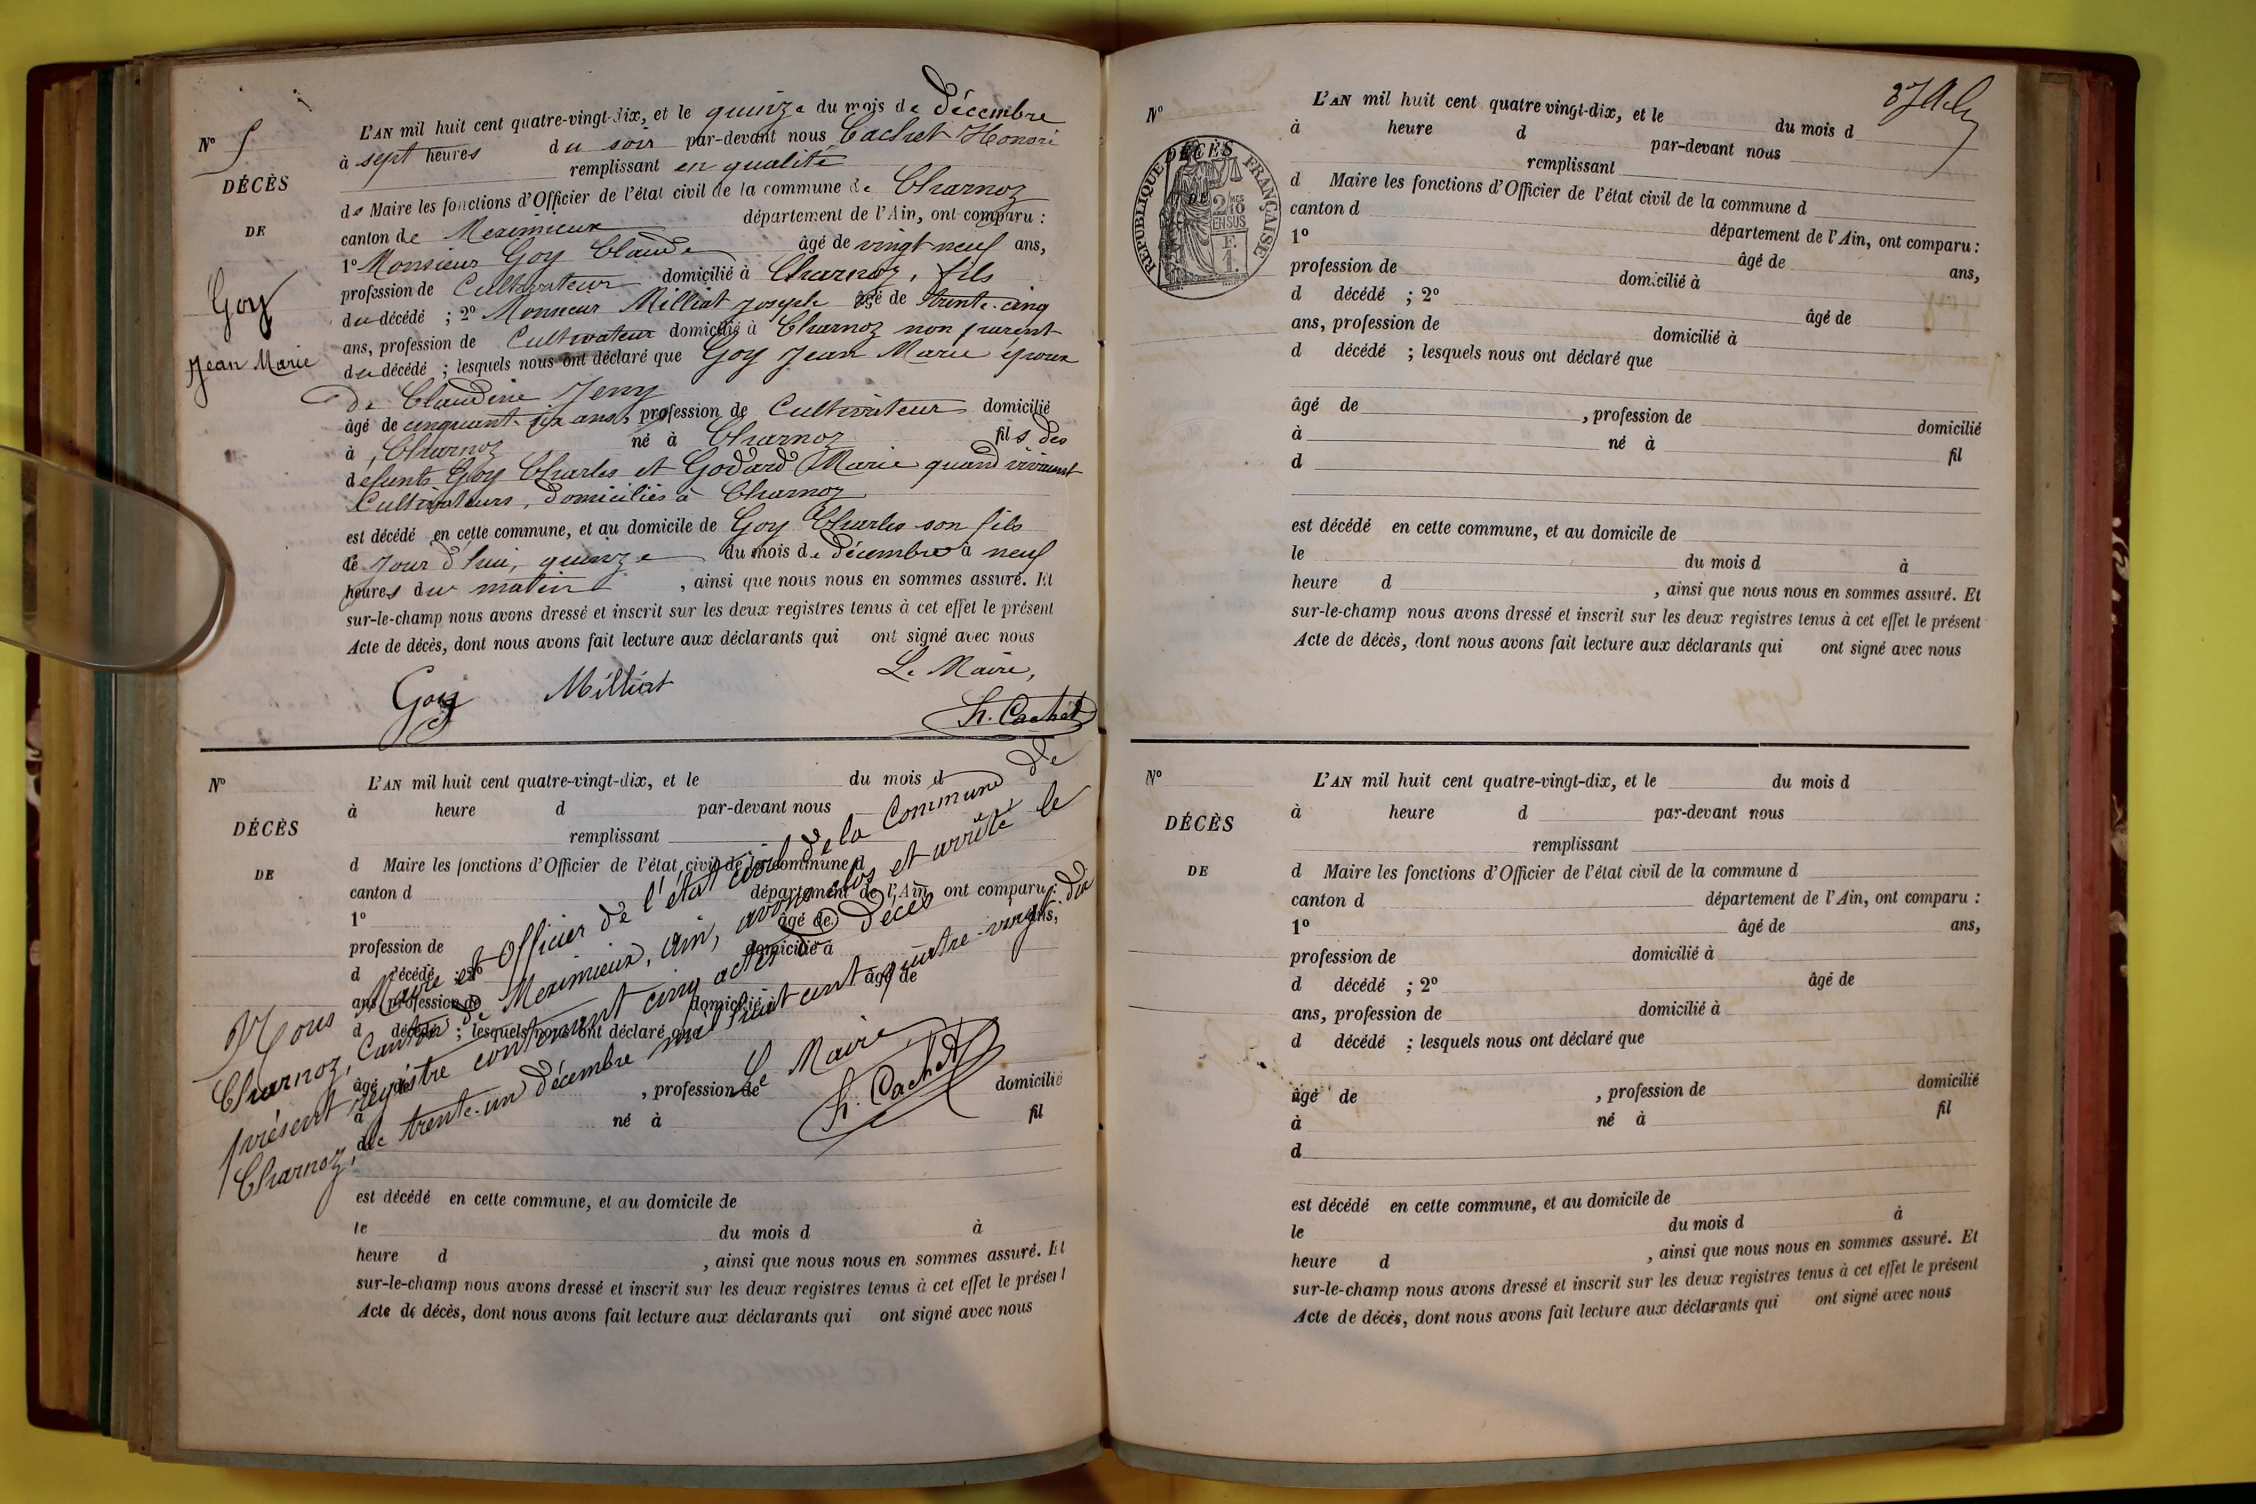 N° 5
DÉCÈS
DE
Goy
Jean Marie
L'AN mil huit cent quatre-vingt-dix, et le quinze du mois de décembre
à sept heures du soir par-devant nous Cachet Honoré
remplissant en qualité
de Maire les fonctions d'Officier de l'état civil de la commune de Charnoz
canton de Meximieux département de l'Ain, ont comparu :
1° Monsieur Goy Claude âgé de vingt neuf ans,
profession de Cultivateur domicilié à Charnoz, fils
du décédé ; 2° Monsieur Milliat Joseph âgé de trente-cinq
ans, profession de Cultivateur domicilié à Charnoz non parent
du décédé ; lesquels nous ont déclaré que Goy Jean Marie époux
de Claudine
âgé de cinquant-six ans, profession de Cultivateur domicilié
à Charnoz né à Charnoz fils des
défunts Goy Charles et Godard Marie quand vivaient
Cultivateurs, domiciliés à Charnoz
est décédé en cette commune, et au domicile de Goy Charles son fils
ce jour d'hui, quinze du mois de décembre à neuf
heures du matin, ainsi que nous nous en sommes assuré. Et
sur-le-champ nous avons dressé et inscrit sur les deux registres tenus à cet effet le présent
Acte de décès, dont nous avons fait lecture aux déclarants qui ont signé avec nous
Le Maire,
Goy Milliat h. Cachet
N°
DÉCÈS
DE
L'AN mil huit cent quatre-vingt-dix, et le du mois d
à heure d par-devant nous
remplissant
d Maire les fonctions d'Officier de l'état civil de la commune d
canton d département de l'Ain, ont comparu :
1° âgé de ans,
profession de domicilié à
d décédé ; 2° âgé de
ans, profession de domicilié à
d décédé ; lesquels nous ont déclaré que
âgé de , profession de domicilié
à né à fil
d
Nous Maire et Officier de l'état civil de la Commune de
Charnoz, Canton de Meximieux, Ain, avons clos et arrêté le
présent registre contenant cinq actes de Décès
Charnoz, le trente-un décembre mil huit cent quatre-vingt dix
Le Maire
h. Cachet
est décédé en cette commune, et au domicile de
le du mois d à
heure d , ainsi que nous nous en sommes assuré. Et
sur-le-champ nous avons dressé et inscrit sur les deux registres tenus à cet effet le présent
Acte de décès, dont nous avons fait lecture aux déclarants qui ont signé avec nous
N°
DÉCÈS
DE
RÉPUBLIQUE FRANÇAISE
2/10 EN SUS
F.
1.
L'AN mil huit cent quatre vingt-dix, et le du mois d
à heure d par-devant nous
remplissant
d Maire les fonctions d'Officier de l'état civil de la commune d
canton d département de l'Ain, ont comparu :
1° âgé de ans,
profession de domicilié à
d décédé ; 2° âgé de
ans, profession de domicilié à
d décédé ; lesquels nous ont déclaré que
âgé de , profession de domicilié
à né à fil
d
est décédé en cette commune, et au domicile de
le du mois d à
heure d , ainsi que nous nous en sommes assuré. Et
sur-le-champ nous avons dressé et inscrit sur les deux registres tenus à cet effet le présent
Acte de décès, dont nous avons fait lecture aux déclarants qui ont signé avec nous
N°
DÉCÈS
DE
L'AN mil huit cent quatre-vingt-dix, et le du mois d
à heure d par-devant nous
remplissant
d Maire les fonctions d'Officier de l'état civil de la commune d
canton d département de l'Ain, ont comparu :
1° âgé de ans,
profession de domicilié à
d décédé ; 2° âgé de
ans, profession de domicilié à
d décédé ; lesquels nous ont déclaré que
âgé de , profession de domicilié
à né à fil
d
est décédé en cette commune, et au domicile de
le du mois d à
heure d , ainsi que nous nous en sommes assuré. Et
sur-le-champ nous avons dressé et inscrit sur les deux registres tenus à cet effet le présent
Acte de décès, dont nous avons fait lecture aux déclarants qui ont signé avec nous